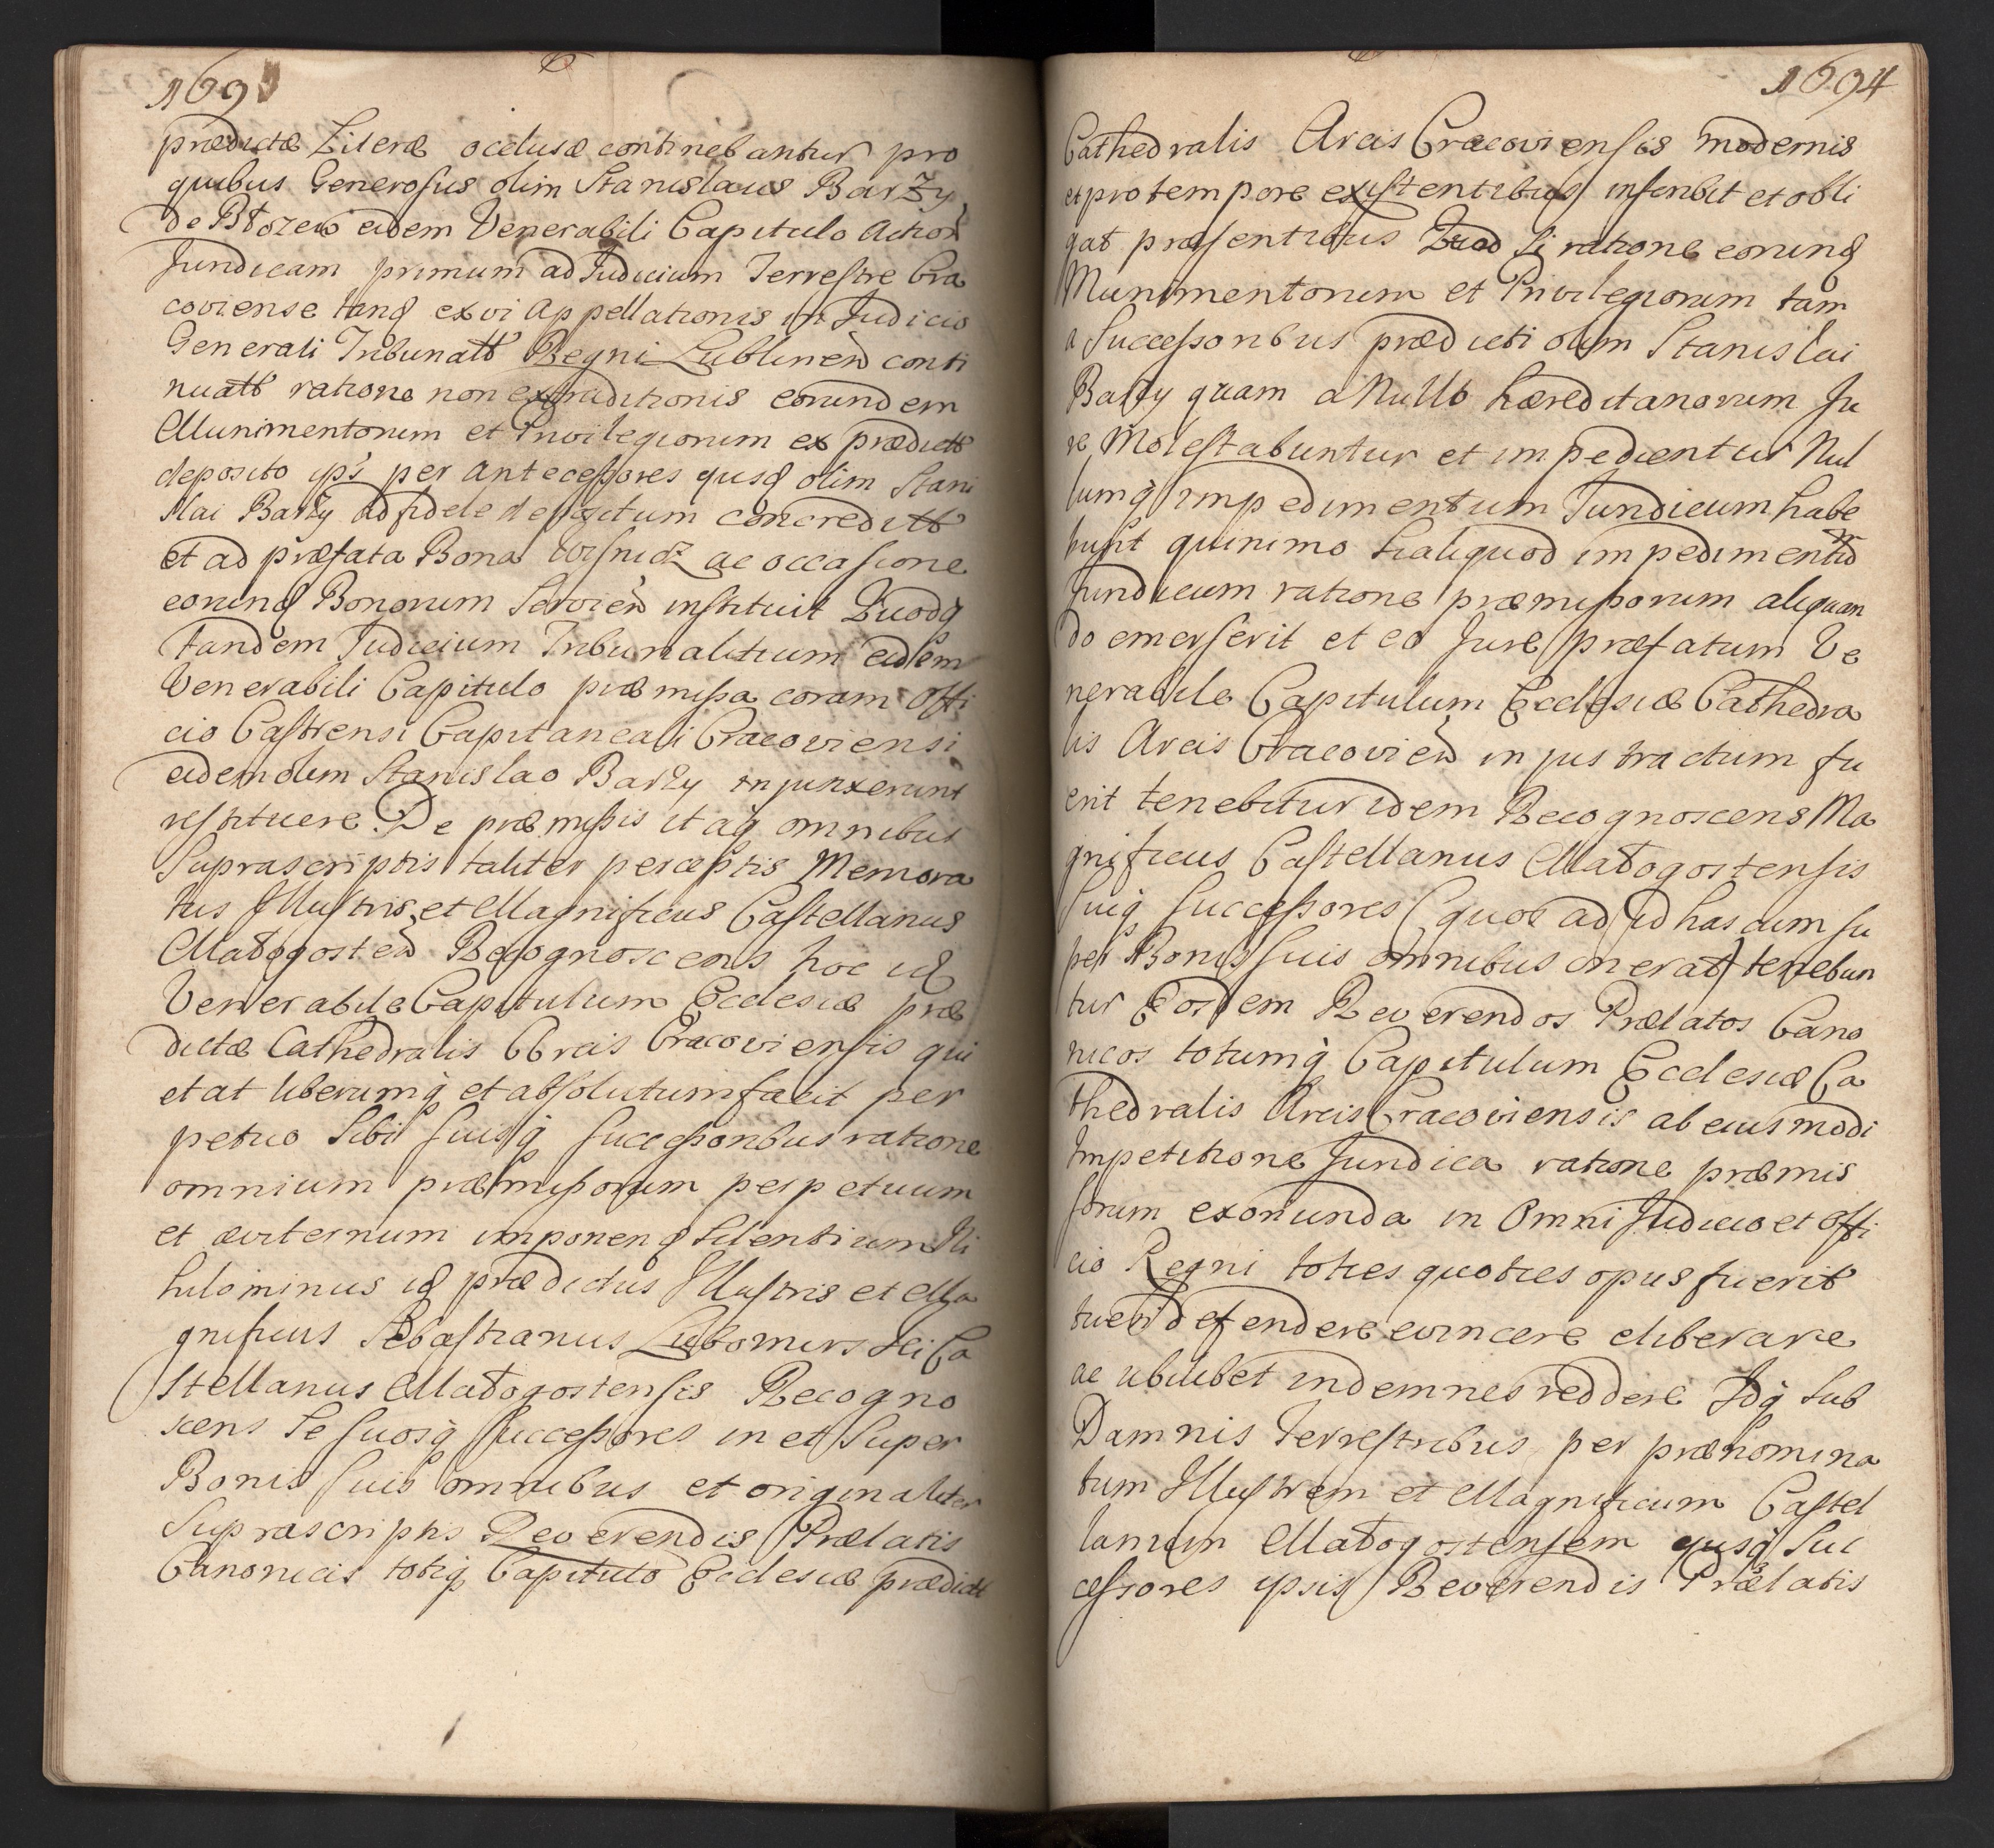 1693
prædictæ Literæ occlusæ continebantur pro
quibus Generosus olim Stanislaus Barzy
de Błozew eidem Venerabili Capitulo Action
Juridicam primum ad Judicium Terrestre Cra
coviense tandꝫ ex vi Appellationis in Judicio
Generali Tribunalt Regni Lublinen conti
nuatt ratione non extraditionis eorundem
Munimentorum et Privilegiorum ex prædictt
deposito ips per antecessores ejusꝫ olim Stani
slai Barzy ad fidele depositum concreditt
et ad præfata Bona Wisnicz ac occasione
eorundꝫ Bonorum Servien instituit Quodq
tandem Judicium Tribunalitium eidem
Venerabili Capitulo præmissa coram Offi
cio Castrensi Capitaneali Cracoviensi
eidem olim Stanislao Barzy injunxerunt
restituere. De præmissis itaq omnibus
Suprascriptis taliter perceptis Memora
tus Illustris et Magnificus Castellanus
Małogosten Recognoscens hoc idꝫ
Venerabile Capitulum Ecclesiæ præ
dictæ Cathedralis Arcis Cracoviensis qui
etat liberumq et absolutum facit per
petuo Sibi suisq successoribus ratione
omnium præmissorum perpetuum
et æviternum imponendꝫ Silentium Ni
hilominus idꝫ prædictus Illustris et Ma
gnificus Sebastianus Lubomirski Ca
stellanus Małogostensis Recogno
scens Se suosq Successores in et super
Bonis suis omnibus et originaliter
Suprascriptis Reverendis Prælatis
Canonicis totiq Capitulo Ecclesiæ prædictt
1694
Cathedralis Arcis Cracoviensis modernis
et pro tempore existentibus inscribit et obli
gat præsentibus Quod Si ratione eorundꝫ
Munimentorum et Privilegiorum tam
a Successoribus prædicti olim Stanislai
Barzy quam a Nullo hæreditanorum Ju
re Molestabuntur et impedientur Nul
lumq impedimentum Juridicum habe
bunt quinimo Si aliquod impedimentum
Juridicum ratione præmissorum aliquan
do emerserit et eo Jure præfatum Ve
nerabile Capitulum Ecclesiæ Cathedra
lis Arcis Cracovien in jus tractum fu
erit tenebitur idem Recognoscens Ma
gnificus Castellanus Małogostensis
Suiq Successores (quos ad id has cum su
per Bonis suis omnibus onerat) tenebun
tur Eosdem Reverendos Prælatos Cano
nicos totumq Capitulum Ecclesiæ Ca
thedralis Arcis Cracoviensis ab eiusmodi
Impetitione Juridica ratione præmis
sorum exoriunda in Omni Judicio et Offi
cio Regni toties quoties opus fuerit
tueri defendere evincere eliberare
ac ubilibet indemnes reddere Idq Sub
Damnis Terrestribus per prænomina
tum Illustrem et Magnificum Castel
lanum Małogostensem ejusq Suc
cessores ipsis Reverendis Prælatis